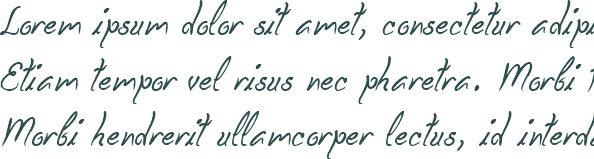 Lorem ipsum dolor sit amet, consectetur adipi
Etiam tempor vel risus nec pharetra. Morbi
Morbi hendrerit ullamcorper lectus, id interd